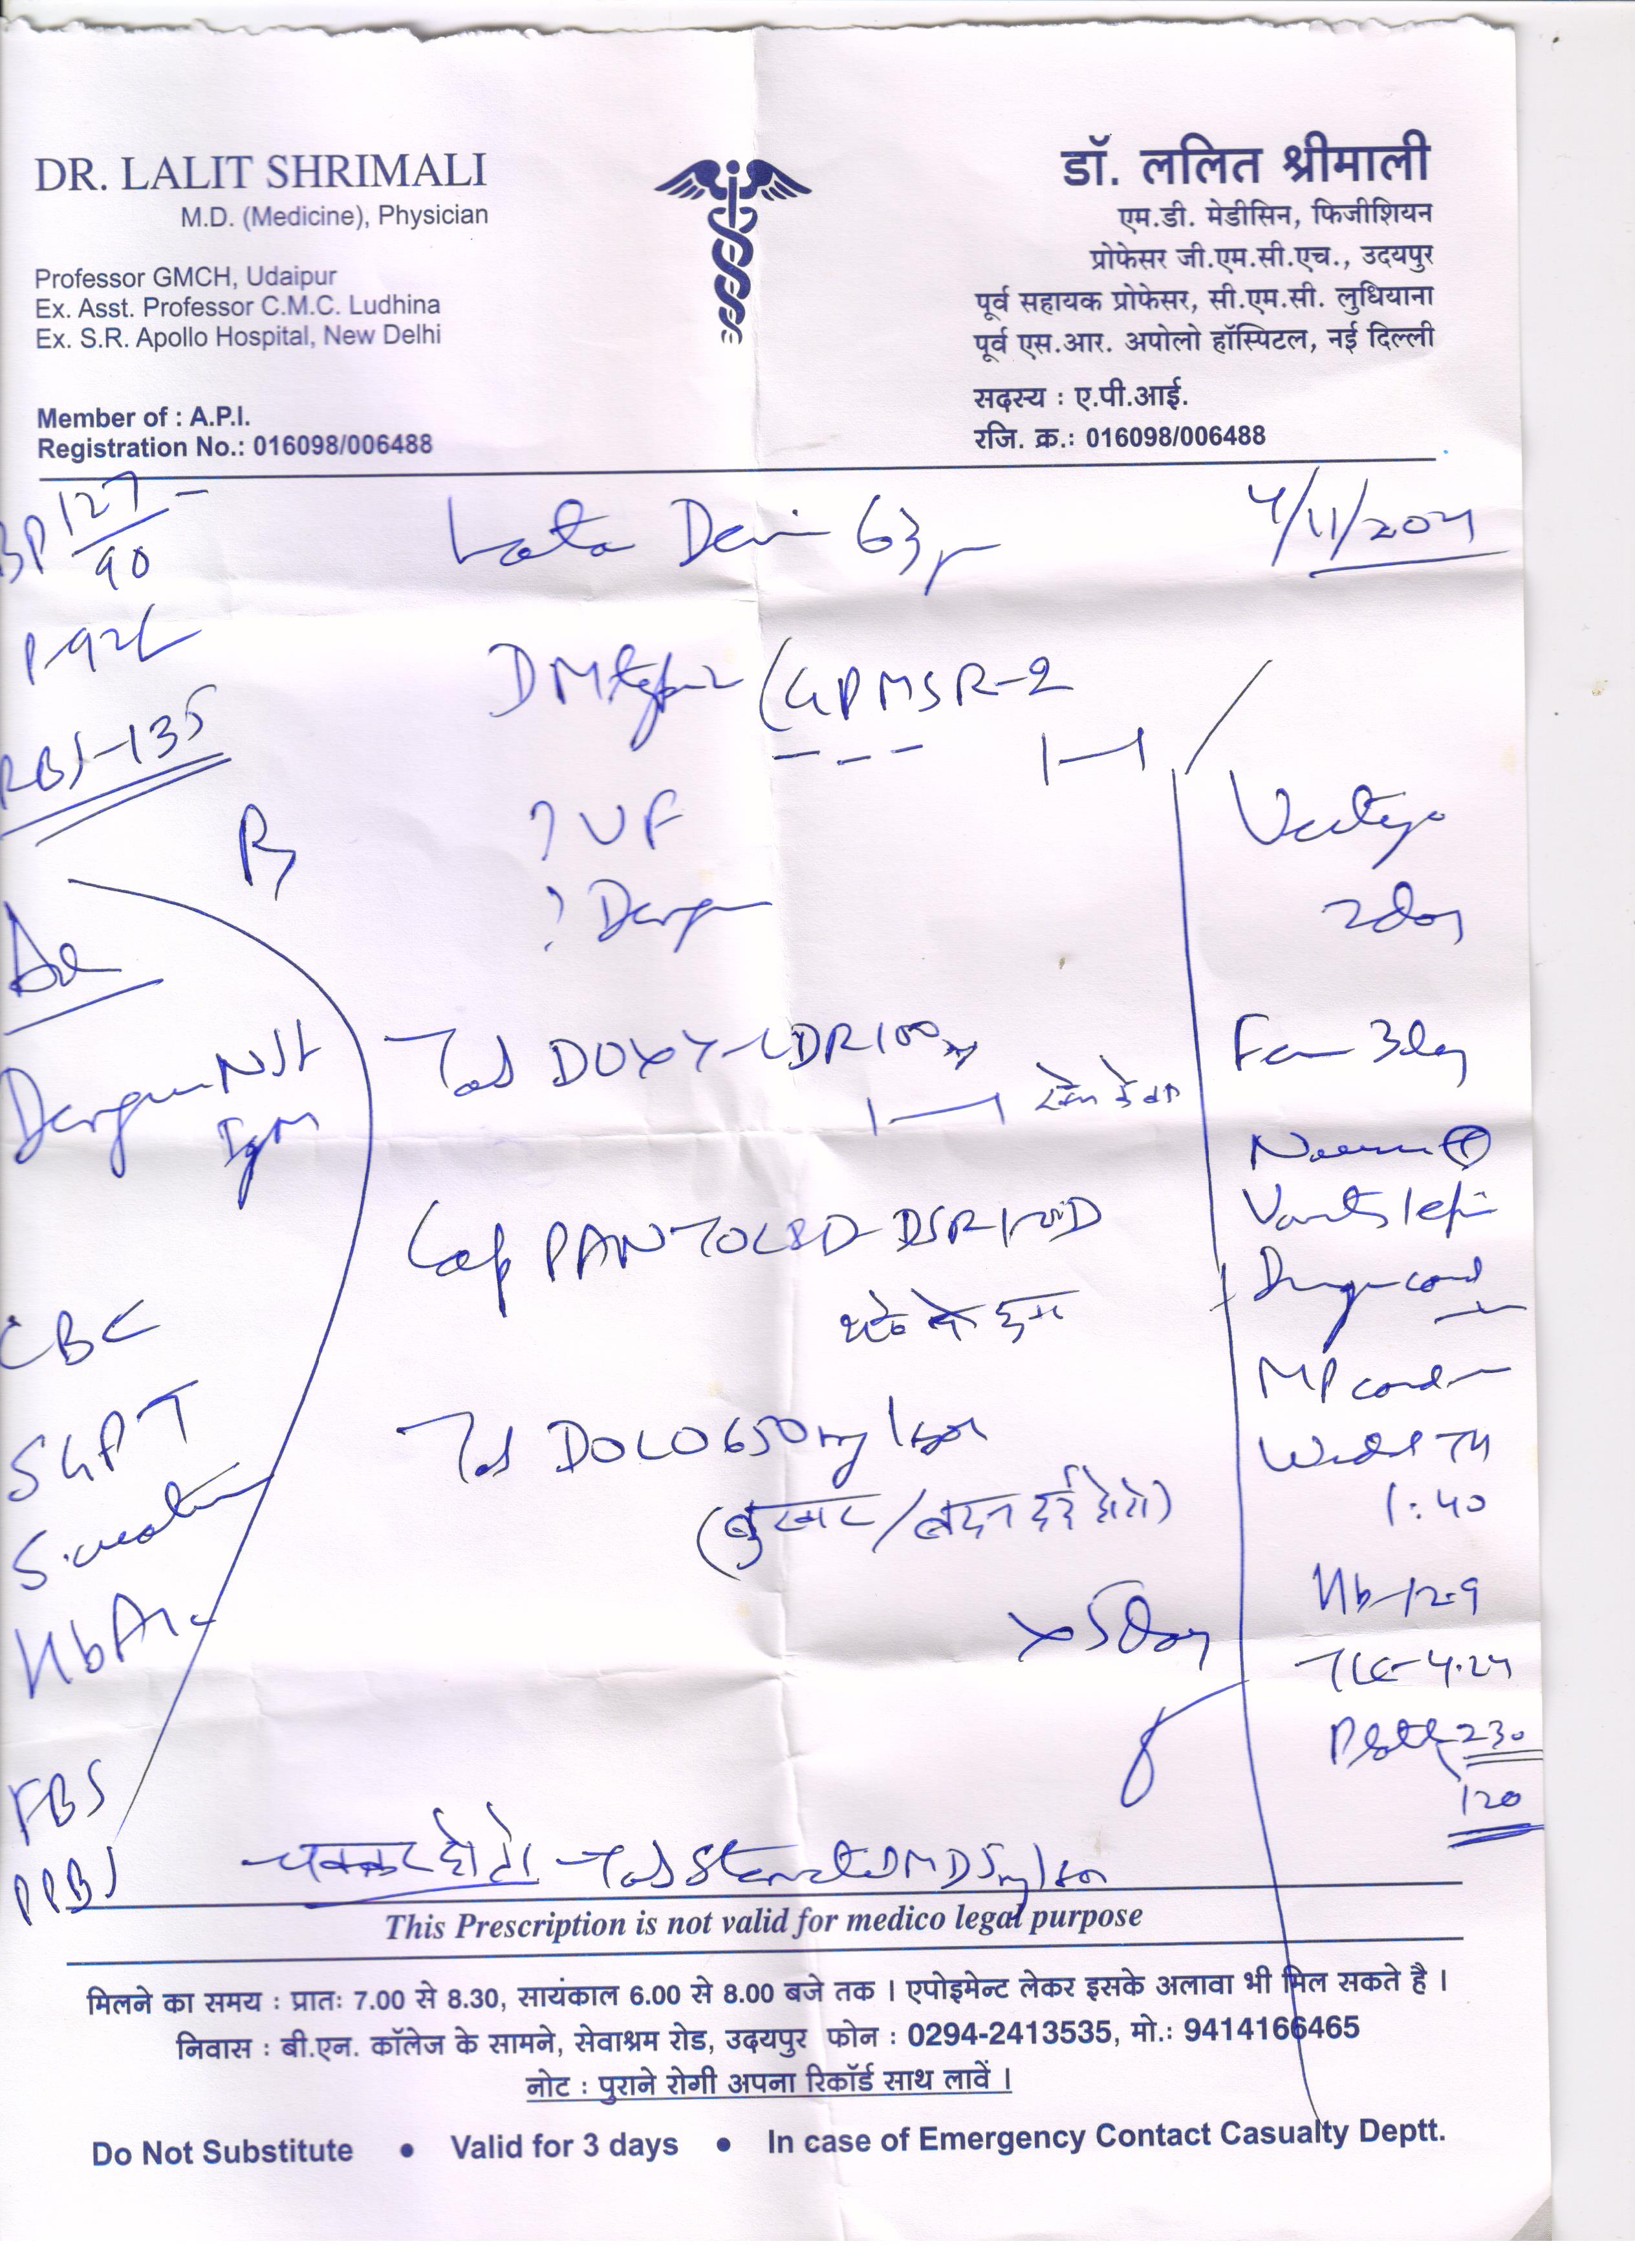 DR. LALIT SHRIMALI
M.D. (Medicine), Physician
Professor GMCH, Udaipur
Ex. Asst. Professor C.M.C. Ludhina
Ex. S.R. Apollo Hospital, New Delhi
Member of : A.P.I.
Registration No.: 016098/006488
डॉ. ललित श्रीमाली
एम.डी. मेडीसिन, फिजीशियन
प्रोफेसर जी.एम.सी.एच., उदयपुर
पूर्व सहायक प्रोफेसर, सी.एम.सी. लुधियाना
पूर्व एस.आर. अपोलो हॉस्पिटल, नई दिल्ली
सदस्य : ए.पी.आई.
रजि. क्र.: 016098/006488
BP 127/90
RBS-135
Dengue NS1
IgM
CBC
SGPT
HbA1c
FBS
PPBS
Lata Devi 63
4/11/
DM type 2 (GPMSR-2
1-1
? VF
? Dengue
Tab DOXY-1 LDR 100mg
1-1
Cap PANTOCID-DSR 1 OD
Tab DOLO 650mg 1 sos
(बुखार/बदन दर्द हो तो)
x 5 Day
चक्कर हो तो Tab Stemetil MD 5mg 1 sos
Vertigo
2 day
Fever 3 day
Dengue card
MP card
Widal TH
1:40
Hb-12.9
TLC-4.24
230
120
This Prescription is not valid for medico legal purpose
मिलने का समय : प्रातः 7.00 से 8.30, सायंकाल 6.00 से 8.00 बजे तक । एपोइमेन्ट लेकर इसके अलावा भी मिल सकते है ।
निवास : बी.एन. कॉलेज के सामने, सेवाश्रम रोड, उदयपुर फोन : 0294-2413535, मो.: 9414166465
नोट : पुराने रोगी अपना रिकॉर्ड साथ लावें ।
Do Not Substitute • Valid for 3 days • In case of Emergency Contact Casualty Deptt.